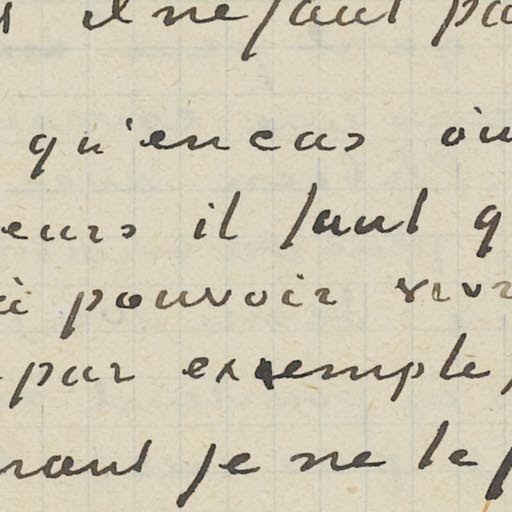 il ne faut pa
qu'en cas où
eurs il faut q
à pouvoir vivr
par exemple,
rant je ne le p